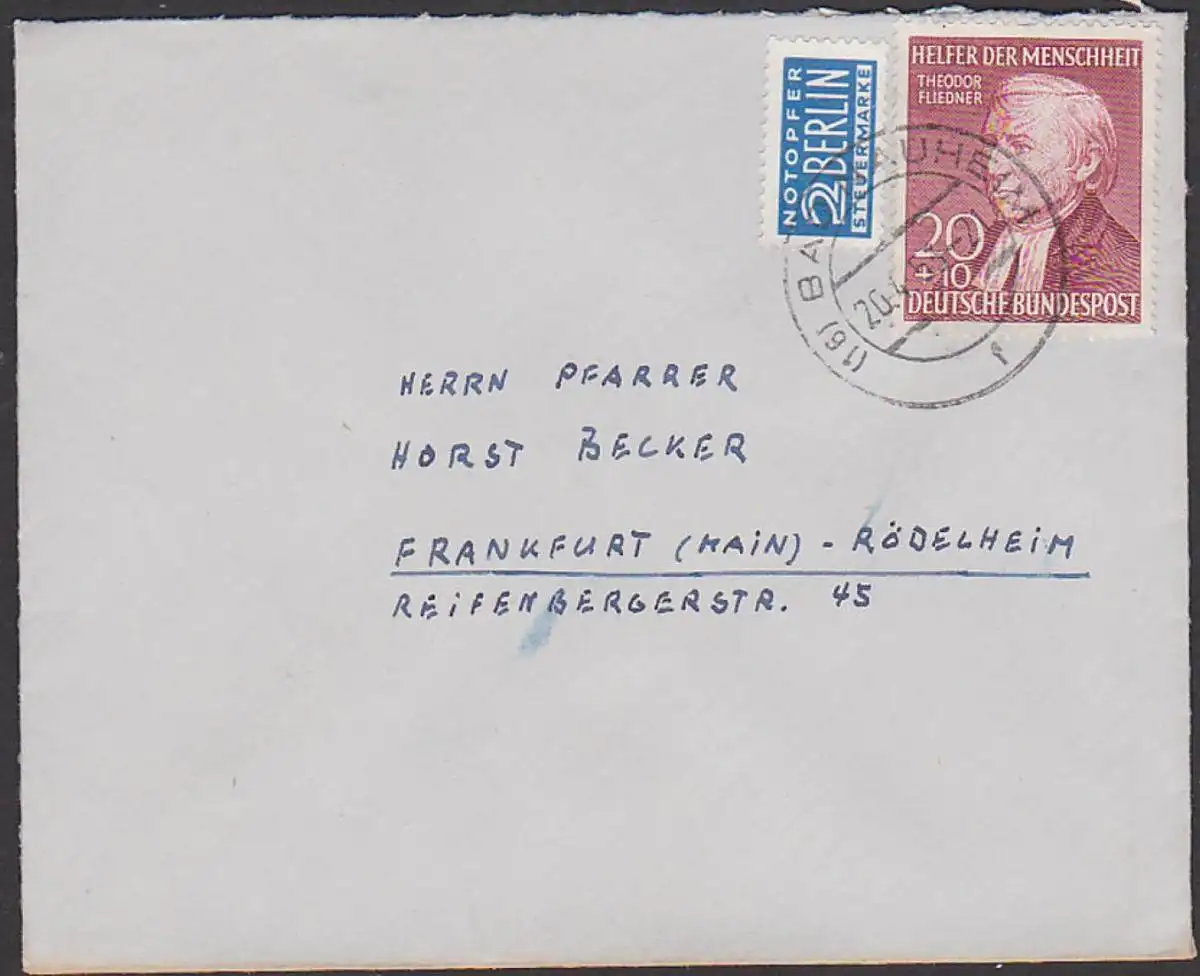 NOTOPFER
2 BERLIN
STEUERMARKE
HELFER DER MENSCHHEIT
THEODOR
FLIEDNER
20
+10
DEUTSCHE BUNDESPOST
(16) BAD NAUHEIM
20.4.53
f
HERRN PFARRER
HORST BECKER
FRANKFURT (MAIN) - RÖDELHEIM
REIFENBERGERSTR. 45